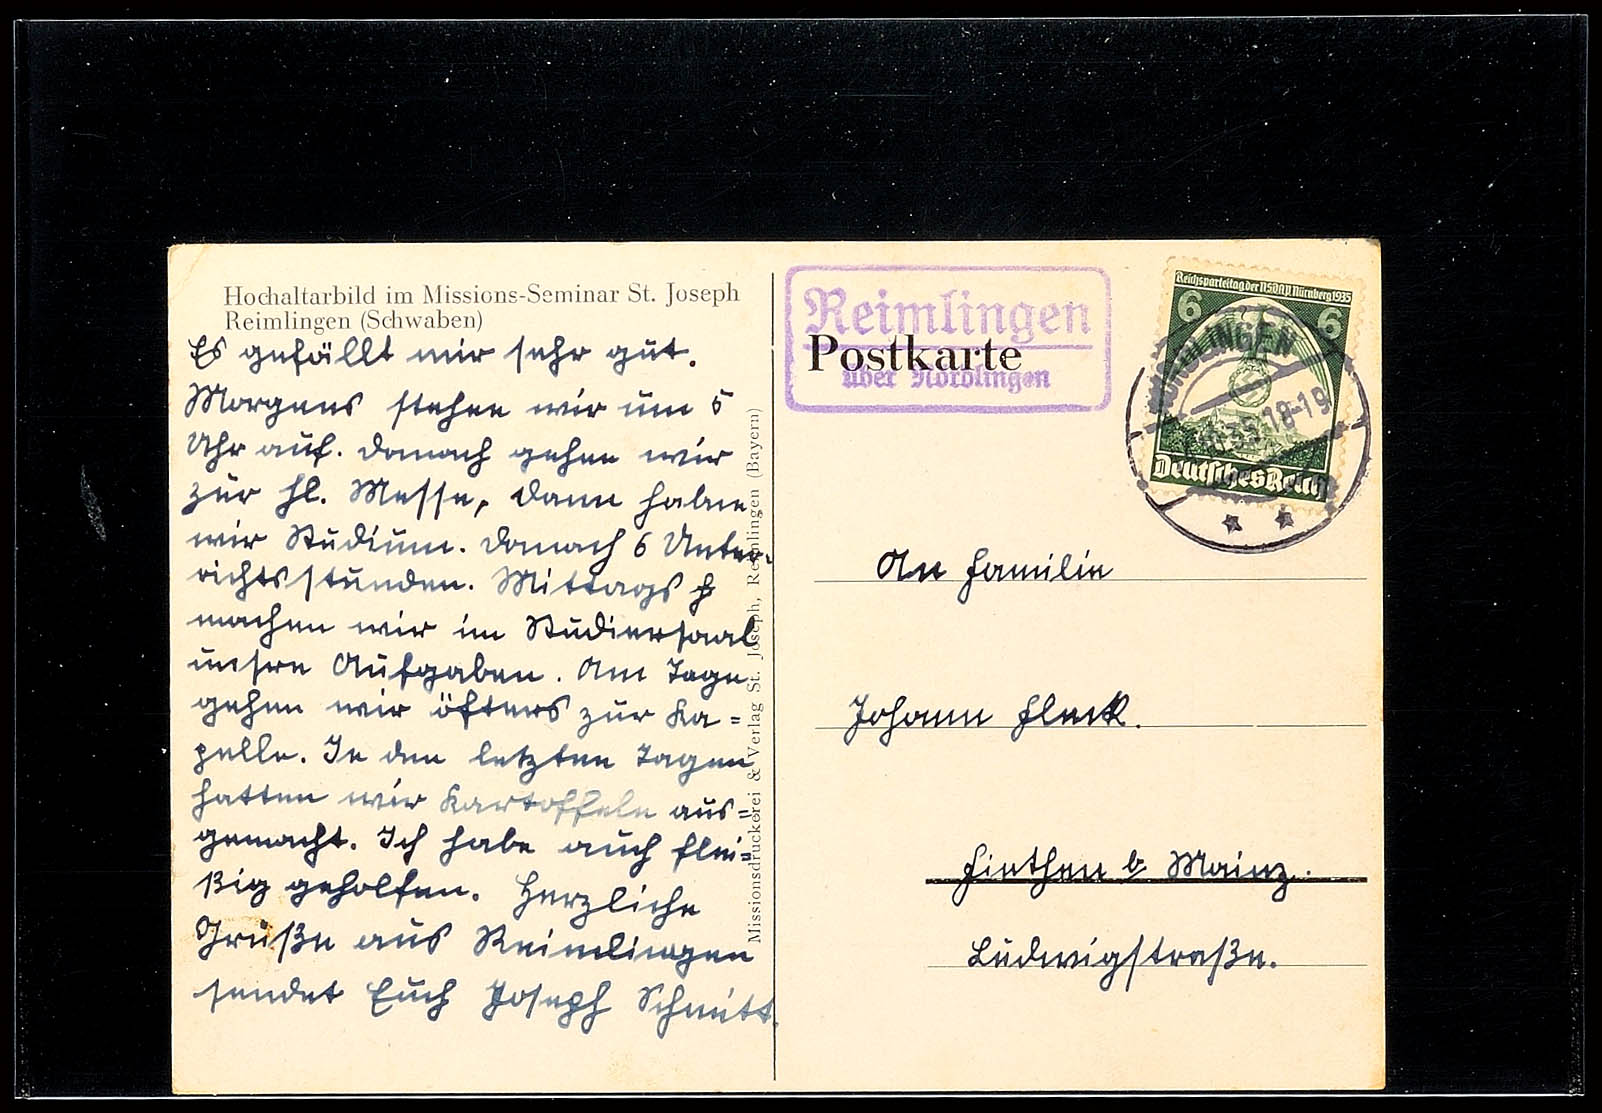 Hochaltarbild im Missions-Seminar St. Joseph
Reimlingen (Schwaben)
Es gefällt mir sehr gut.
Morgens stehen wir um 5
Uhr auf. Danach gehen wir
zur hl. Messe, dann haben
wir Studium. Danach 6 Unter-
richtsstunden. Mittags
machen wir im Studiersaal
unsre Aufgaben. Am Tage
gehen wir öfters zur Ka=
pelle. In den letzten Tagen
hatten wir Kartoffeln aus=
gemacht. Ich habe auch flei=
ßig geholfen. Herzliche
Grüße aus Reimlingen
sendet Euch Joseph Schmitt.
Missionsdruckerei & Verlag St. Joseph, Reimlingen (Bayern)
Reimlingen
Postkarte
über Nördlingen
Reichsparteitag der NSDAP. Nürnberg 1935
6 6
NÖRDLINGEN
35.18-19
Deutsches Reich
An Familie
Johann Fleck.
Finthen b Mainz.
Ludwigstraße.